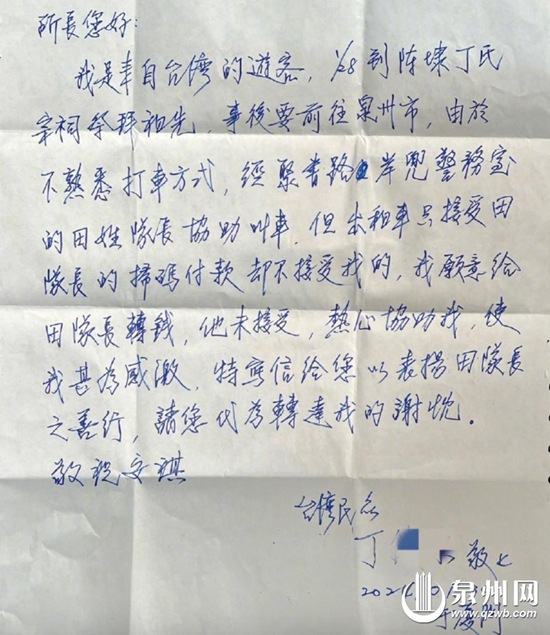 所長您好:
我是来自台湾的遊客，1/28到陈埭丁氏
宗祠祭拜祖先，事後要前往泉州市，由於
不熟悉打車方式，經聚書路岸兜警務室
的田姓隊長協助叫車，但出租車只接受田
隊長的掃碼付款却不接受我的，我願意給
田隊長轉錢，他未接受，熱心協助我，使
我甚為感激，特寫信給您以表揚田隊長
之善行，請您代為轉達我的謝忱。
敬祝安祺
台湾民众
丁 敬上
202
于厦門
泉州网
www.qzwb.com